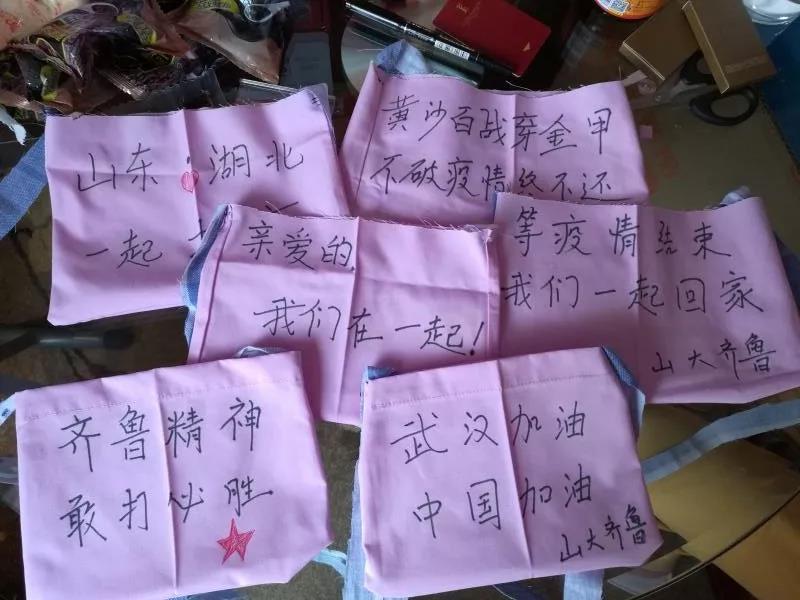 山东 湖北
一起
黄沙百战穿金甲
不破疫情终不还
亲爱的,
我们在一起!
等疫情结束
我们一起回家
山大齐鲁
齐鲁精神
敢打必胜
武汉加油
中国加油
山大齐鲁